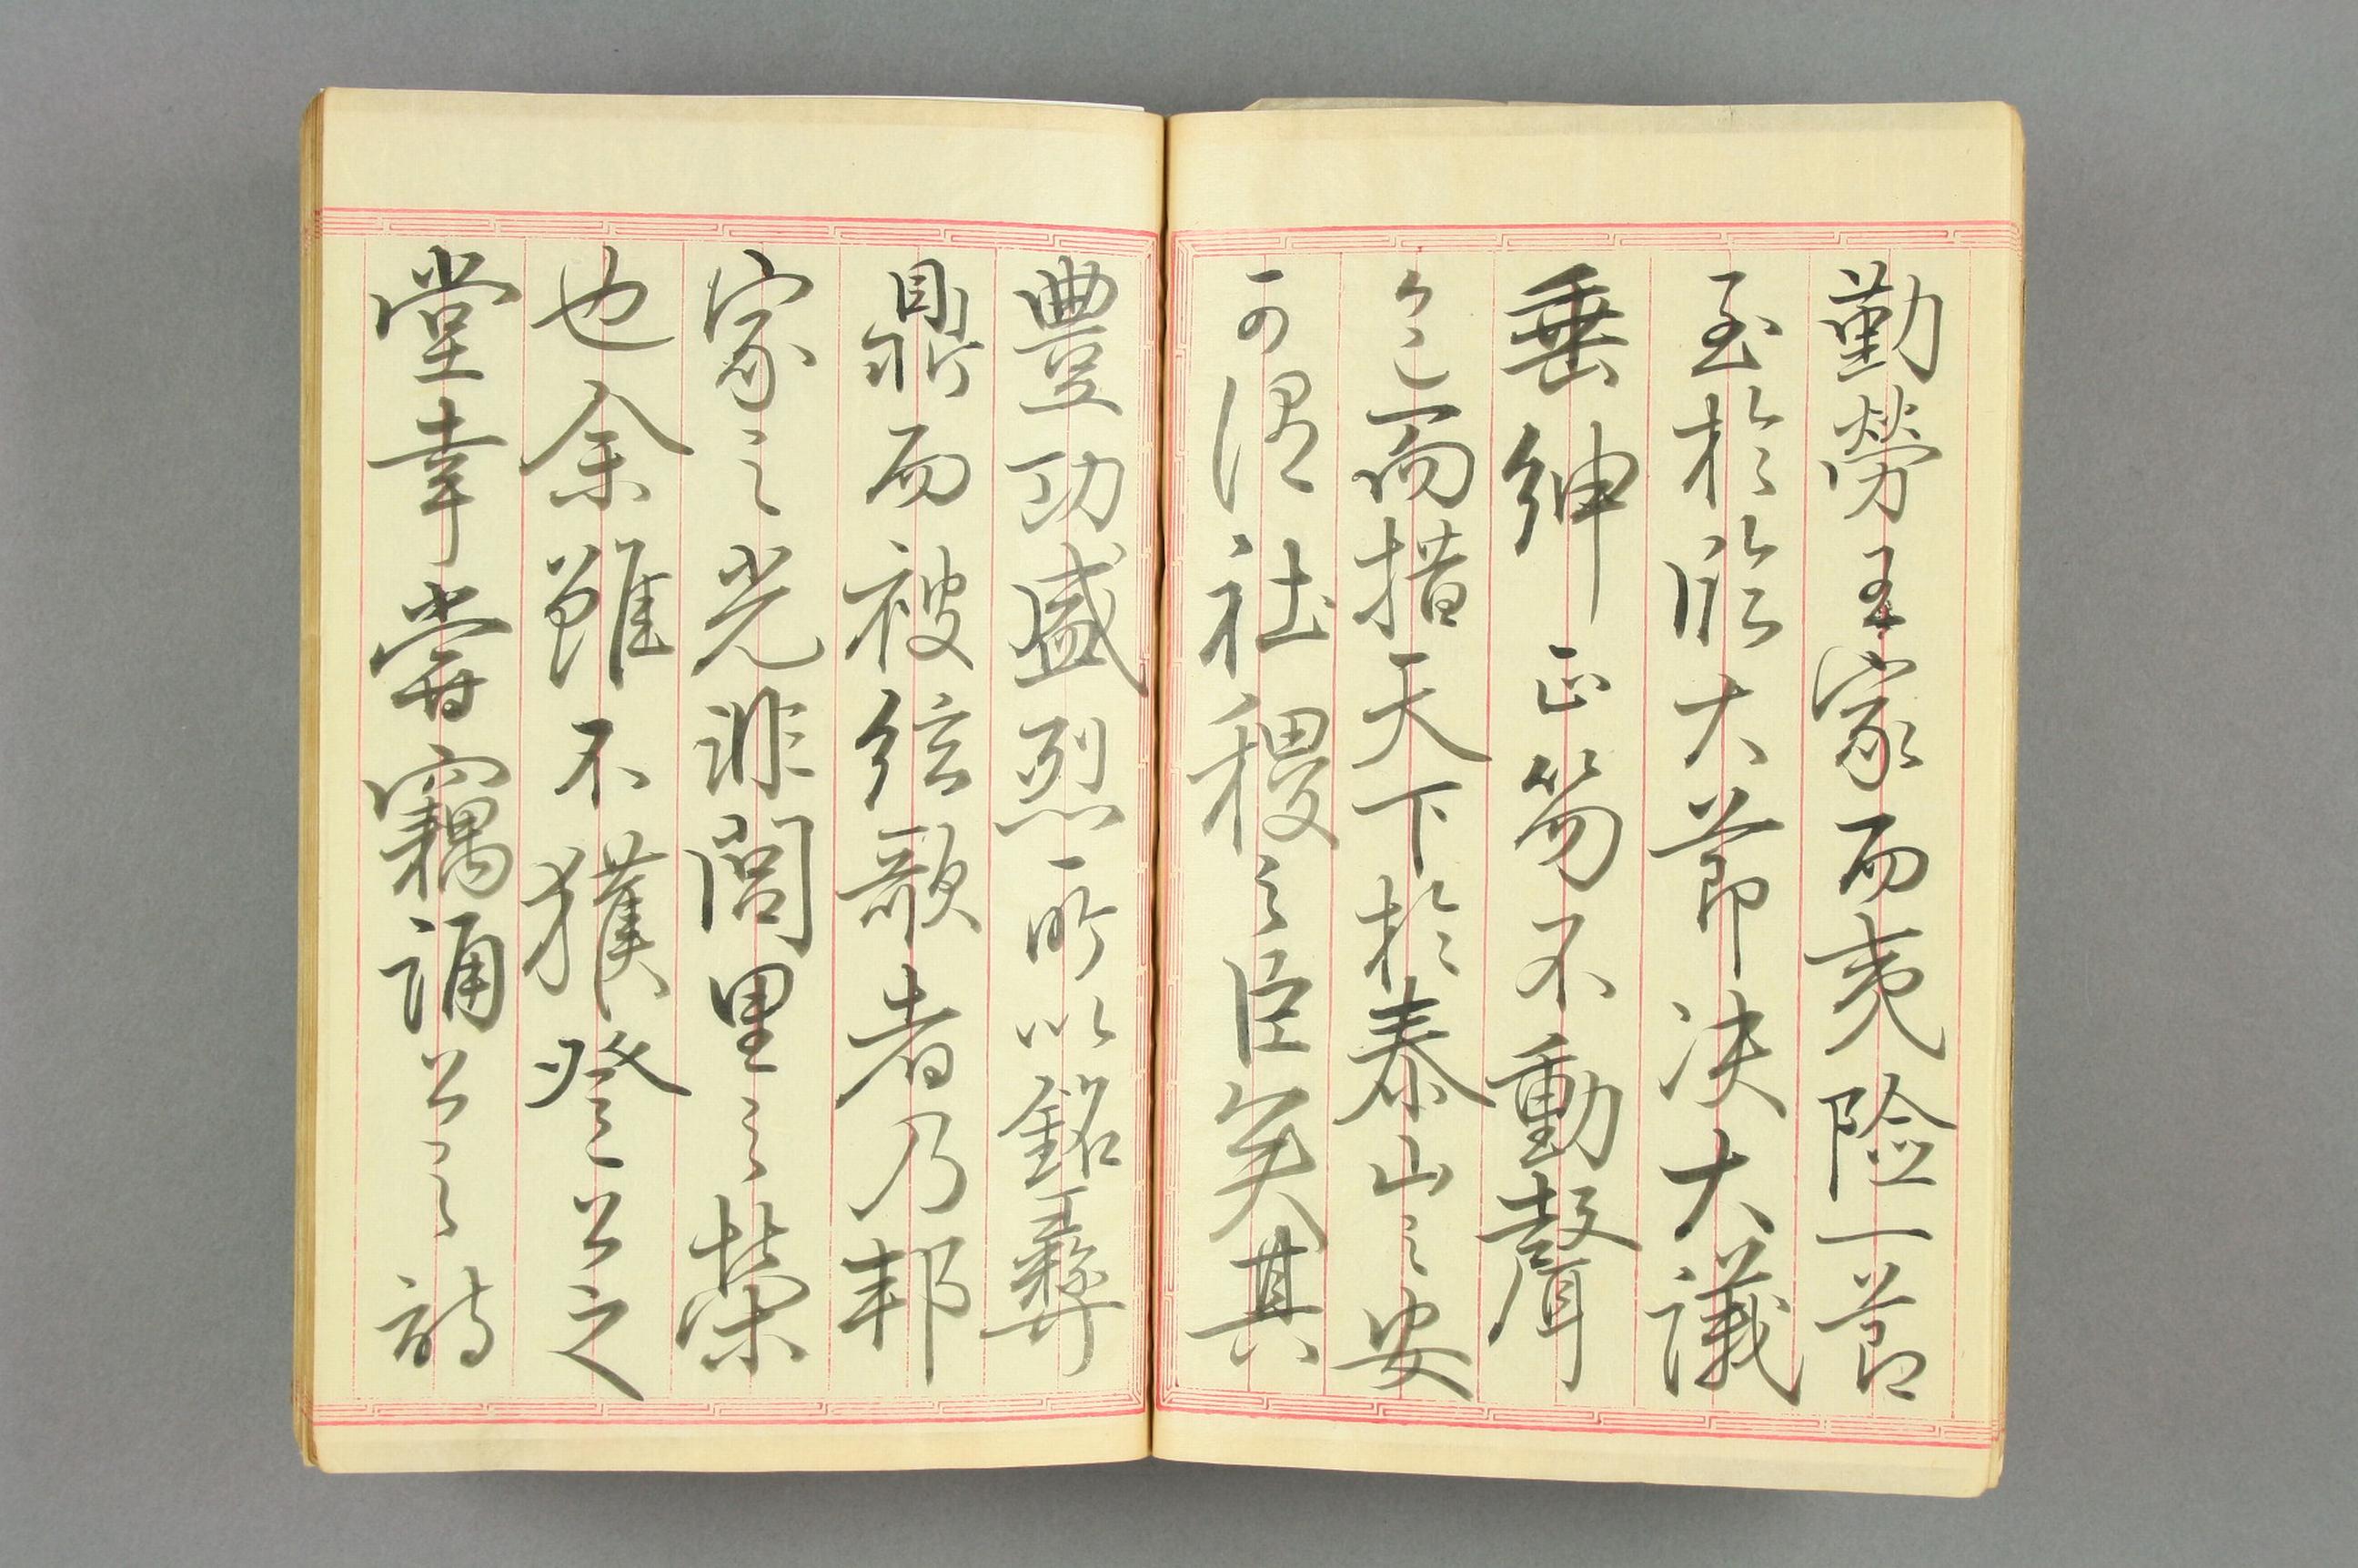 勤勞王家而夷險一節
至於臨大節決大議
垂紳正笏不動聲
色而措天下於泰山之安
可謂社稷之臣矣其
豐功盛烈所以銘彝
鼎而被絃歌者乃邦
家之光非閭里之榮
也余雖不獲登公之
堂幸嘗竊誦公之詩